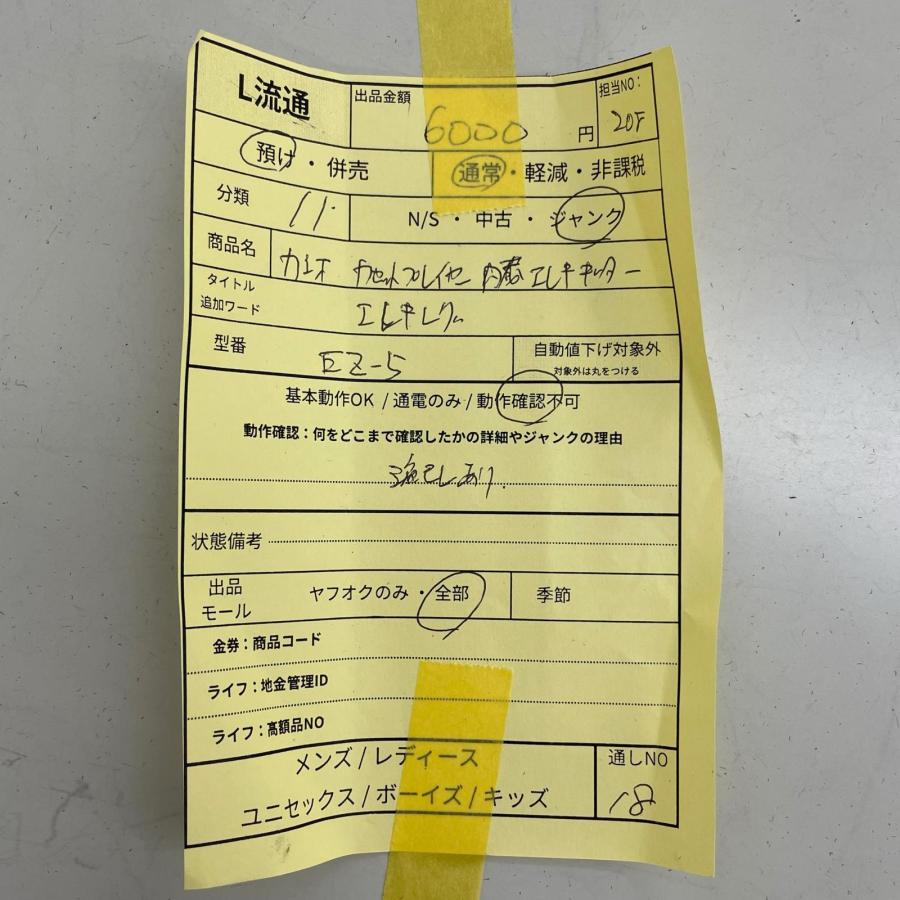 L流通
出品金額 6000 円
担当NO: 20F
預け・併売
通常・軽減・非課税
分類 11
N/S ・ 中古 ・ ジャンク
商品名 カシオ カセットプレイヤー内蔵エレキギター
タイトル
追加ワード
型番 EZ-5
自動値下げ対象外
対象外は丸をつける
基本動作OK / 通電のみ / 動作確認不可
動作確認：何をどこまで確認したかの詳細やジャンクの理由
あり
状態備考
出品
モール
ヤフオクのみ ・ 全部
季節
金券：商品コード
ライフ：地金管理ID
ライフ：高額品NO
メンズ / レディース
ユニセックス / ボーイズ / キッズ
通しNO
18